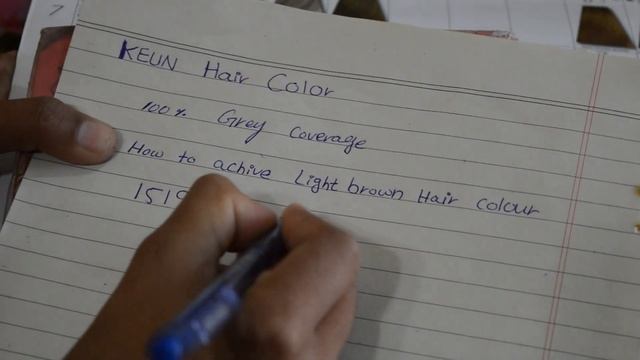 KEUN Hair Color
100% Grey Coverage
How to achive Light brown Hair Colour